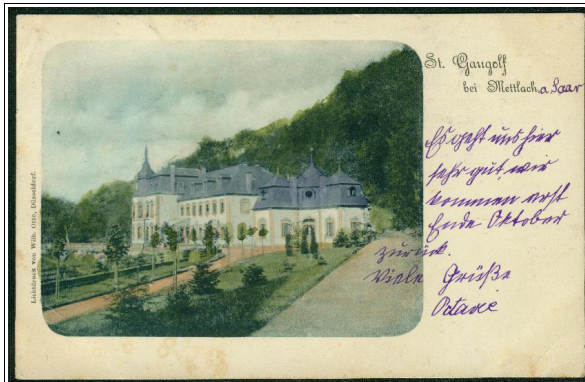 St. Gangolf
bei Mettlach a. Saar
Es geht uns hier
sehr gut, wir
kommen erst
Ende Oktober
zurück.
Viele Grüße
Octavie
Lichtdruck von Wilh. Otto, Düsseldorf.